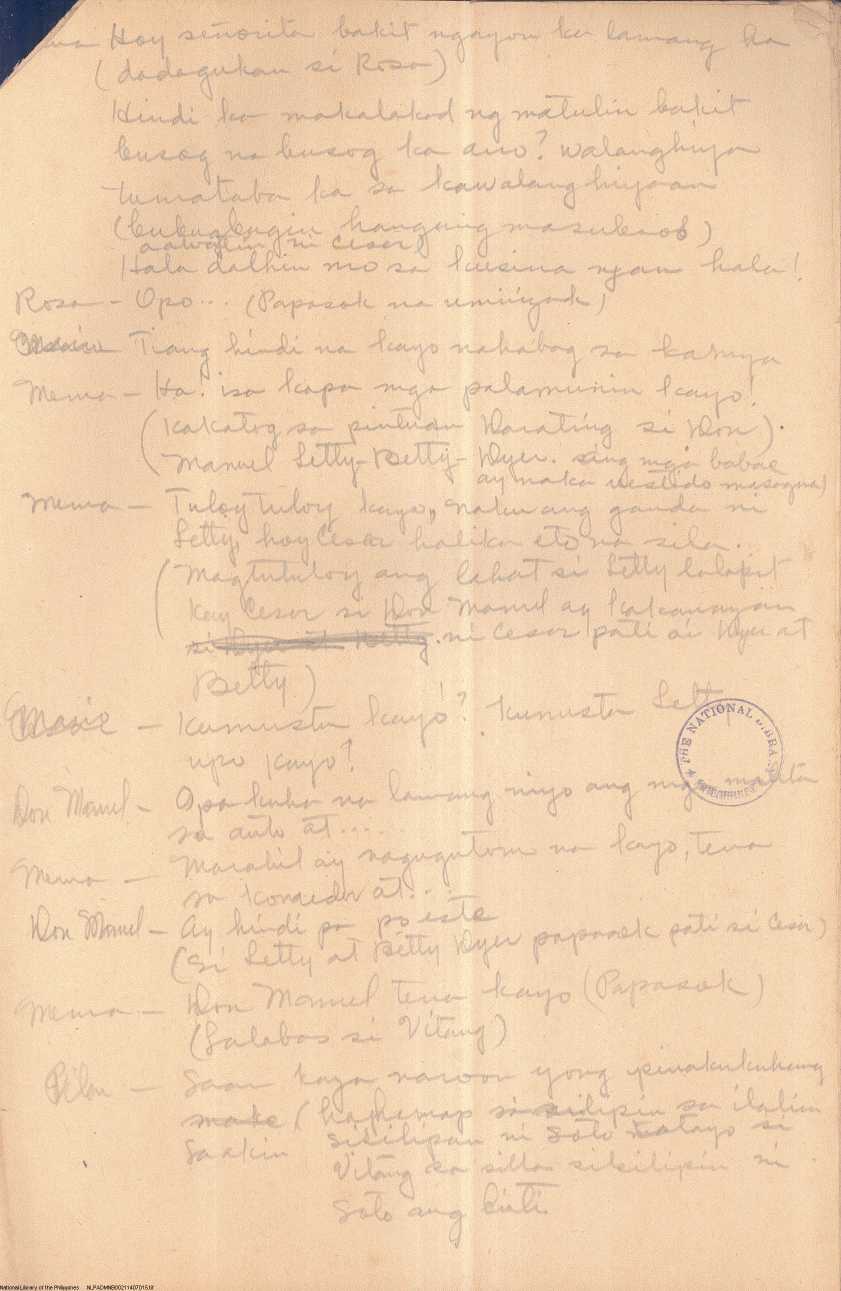 Hoy señorita bakit ngayon ka lamang ha
(dadagukan si Rosa)
Hindi ka makalakad ng matulin bakit
busog na busog ka ano? Walanghiya
tumataba ka sa kawalanghiyaan
(bubugbugin hangang masubsob)
aawatin ni Cesar
Hala dalhin mo sa kusina ngan hala!
Rosa - Opo... (Papasok na umiiyak)
Tiang hindi na kayo nahabag sa kaniya
Mema - Ha! isa kapa mga palamunin kayo!
(Kakatog sa pintuan Darating si Don)
(Manuel Letty-Betty- Dyer. ang mga babae
ay naka vestido masagwa)
Mema - Tuloy tuloy kayo, naku ang ganda ni
Letty, hoy Cesar halika eto na sila...
(Magtutuloy ang lahat si Letty lalapit
kay Cesar si Don Manuel ay kakamayan
ni Cesar pati si Dyer at
Betty)
- Kumusta kayo? Kumusta Letty
upo kayo!
Don Manuel - Opo kuha na lamang niyo ang mga maleta
sa auto at.....
Mema - Marahil ay nagugutom na kayo, tena
sa komedor at...
Don Manuel - Ay hindi pa po este
(Si Letty at Betty Dyer papasok pati si Cesar)
Mema - Don Manuel tena kayo (Papasok)
(Lalabas si Vitang)
Pilon - Saan kaya naroon yong ipinakukuhang
(hahanap sisilipin sa ilalim
saakin sisilipan ni Soto tatayo si
Vitang sa silla sisilipin ni
Soto ang binti
THE NATIONAL LIBRARY
PHILIPPINES
National Library of the Philippines NLPADMNB00211407015.tif